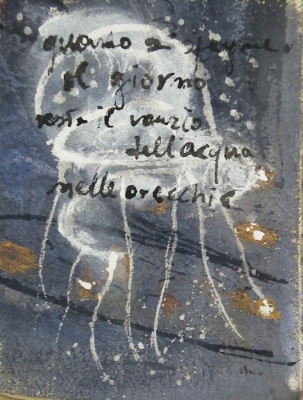 quando si spegne
il giorno
resta il ronzio
dell'acqua
nelle orecchie